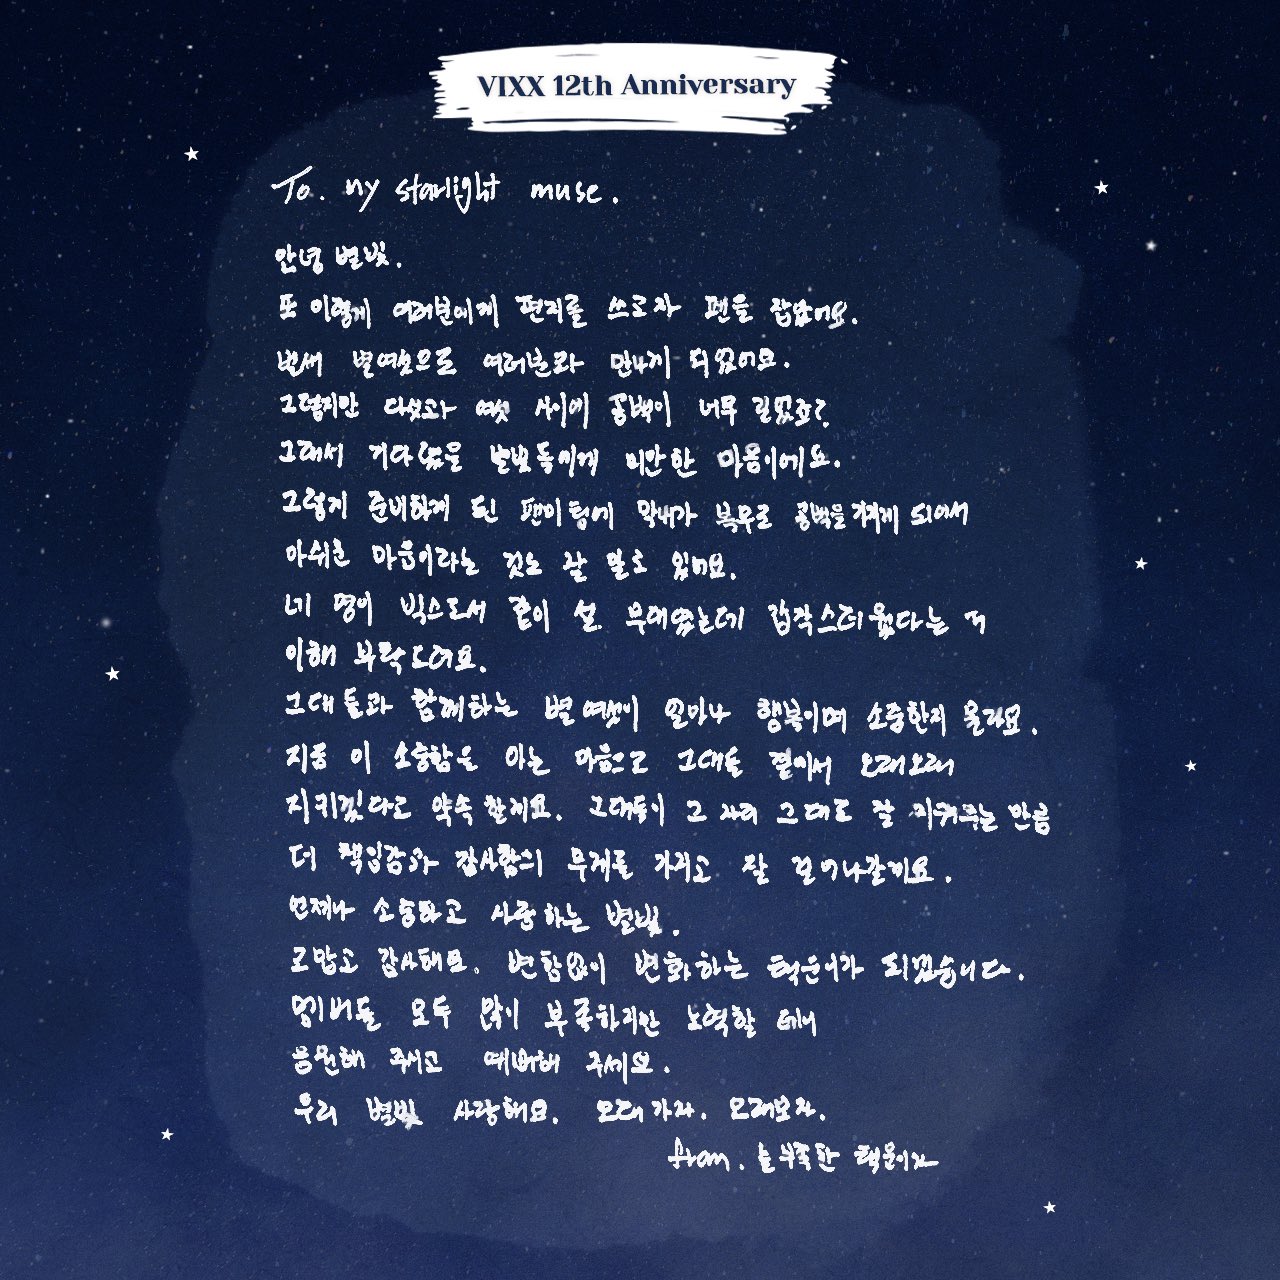 VIXX 12th Anniversary
To. my starlight muse.
안녕 별빛.
또 이렇게 여러분에게 편지를 쓰고자 펜을 잡았어요.
벌써 별여섯으로 여러분과 만나게 되었어요.
그렇지만 다섯과 여섯 사이에 공백이 너무 길었죠?
그래서 기다렸을 별빛들에게 미안한 마음이에요.
그렇게 준비하게 된 팬미팅에 막내가 복무로 공백을 가지게 되어서
아쉬운 마음이라는 것도 잘 알고 있어요.
네 명이 빅스로서 같이 설 무대였는데 갑작스러웠다는 거
이해 부탁드려요.
그대들과 함께하는 별 여섯이 얼마나 행복이며 소중한지 몰라요.
지금 이 소중함을 아는 마음으로 그대들 곁에서 오래오래
지키겠다고 약속 할게요. 그대들이 그 자리 그대로 잘 지켜주는 만큼
더 책임감과 감사함의 무게를 가지고 잘 걸어나갈게요.
언제나 소중하고 사랑하는 별빛.
고맙고 감사해요. 변함없이 변화하는 택운이가 되겠습니다.
멤버들 모두 많이 부족하지만 노력할 테니
응원해 주시고 예뻐해 주세요.
우리 별빛 사랑해요. 오래가자. 오래보자.
from. 늘 부족한 택운이가